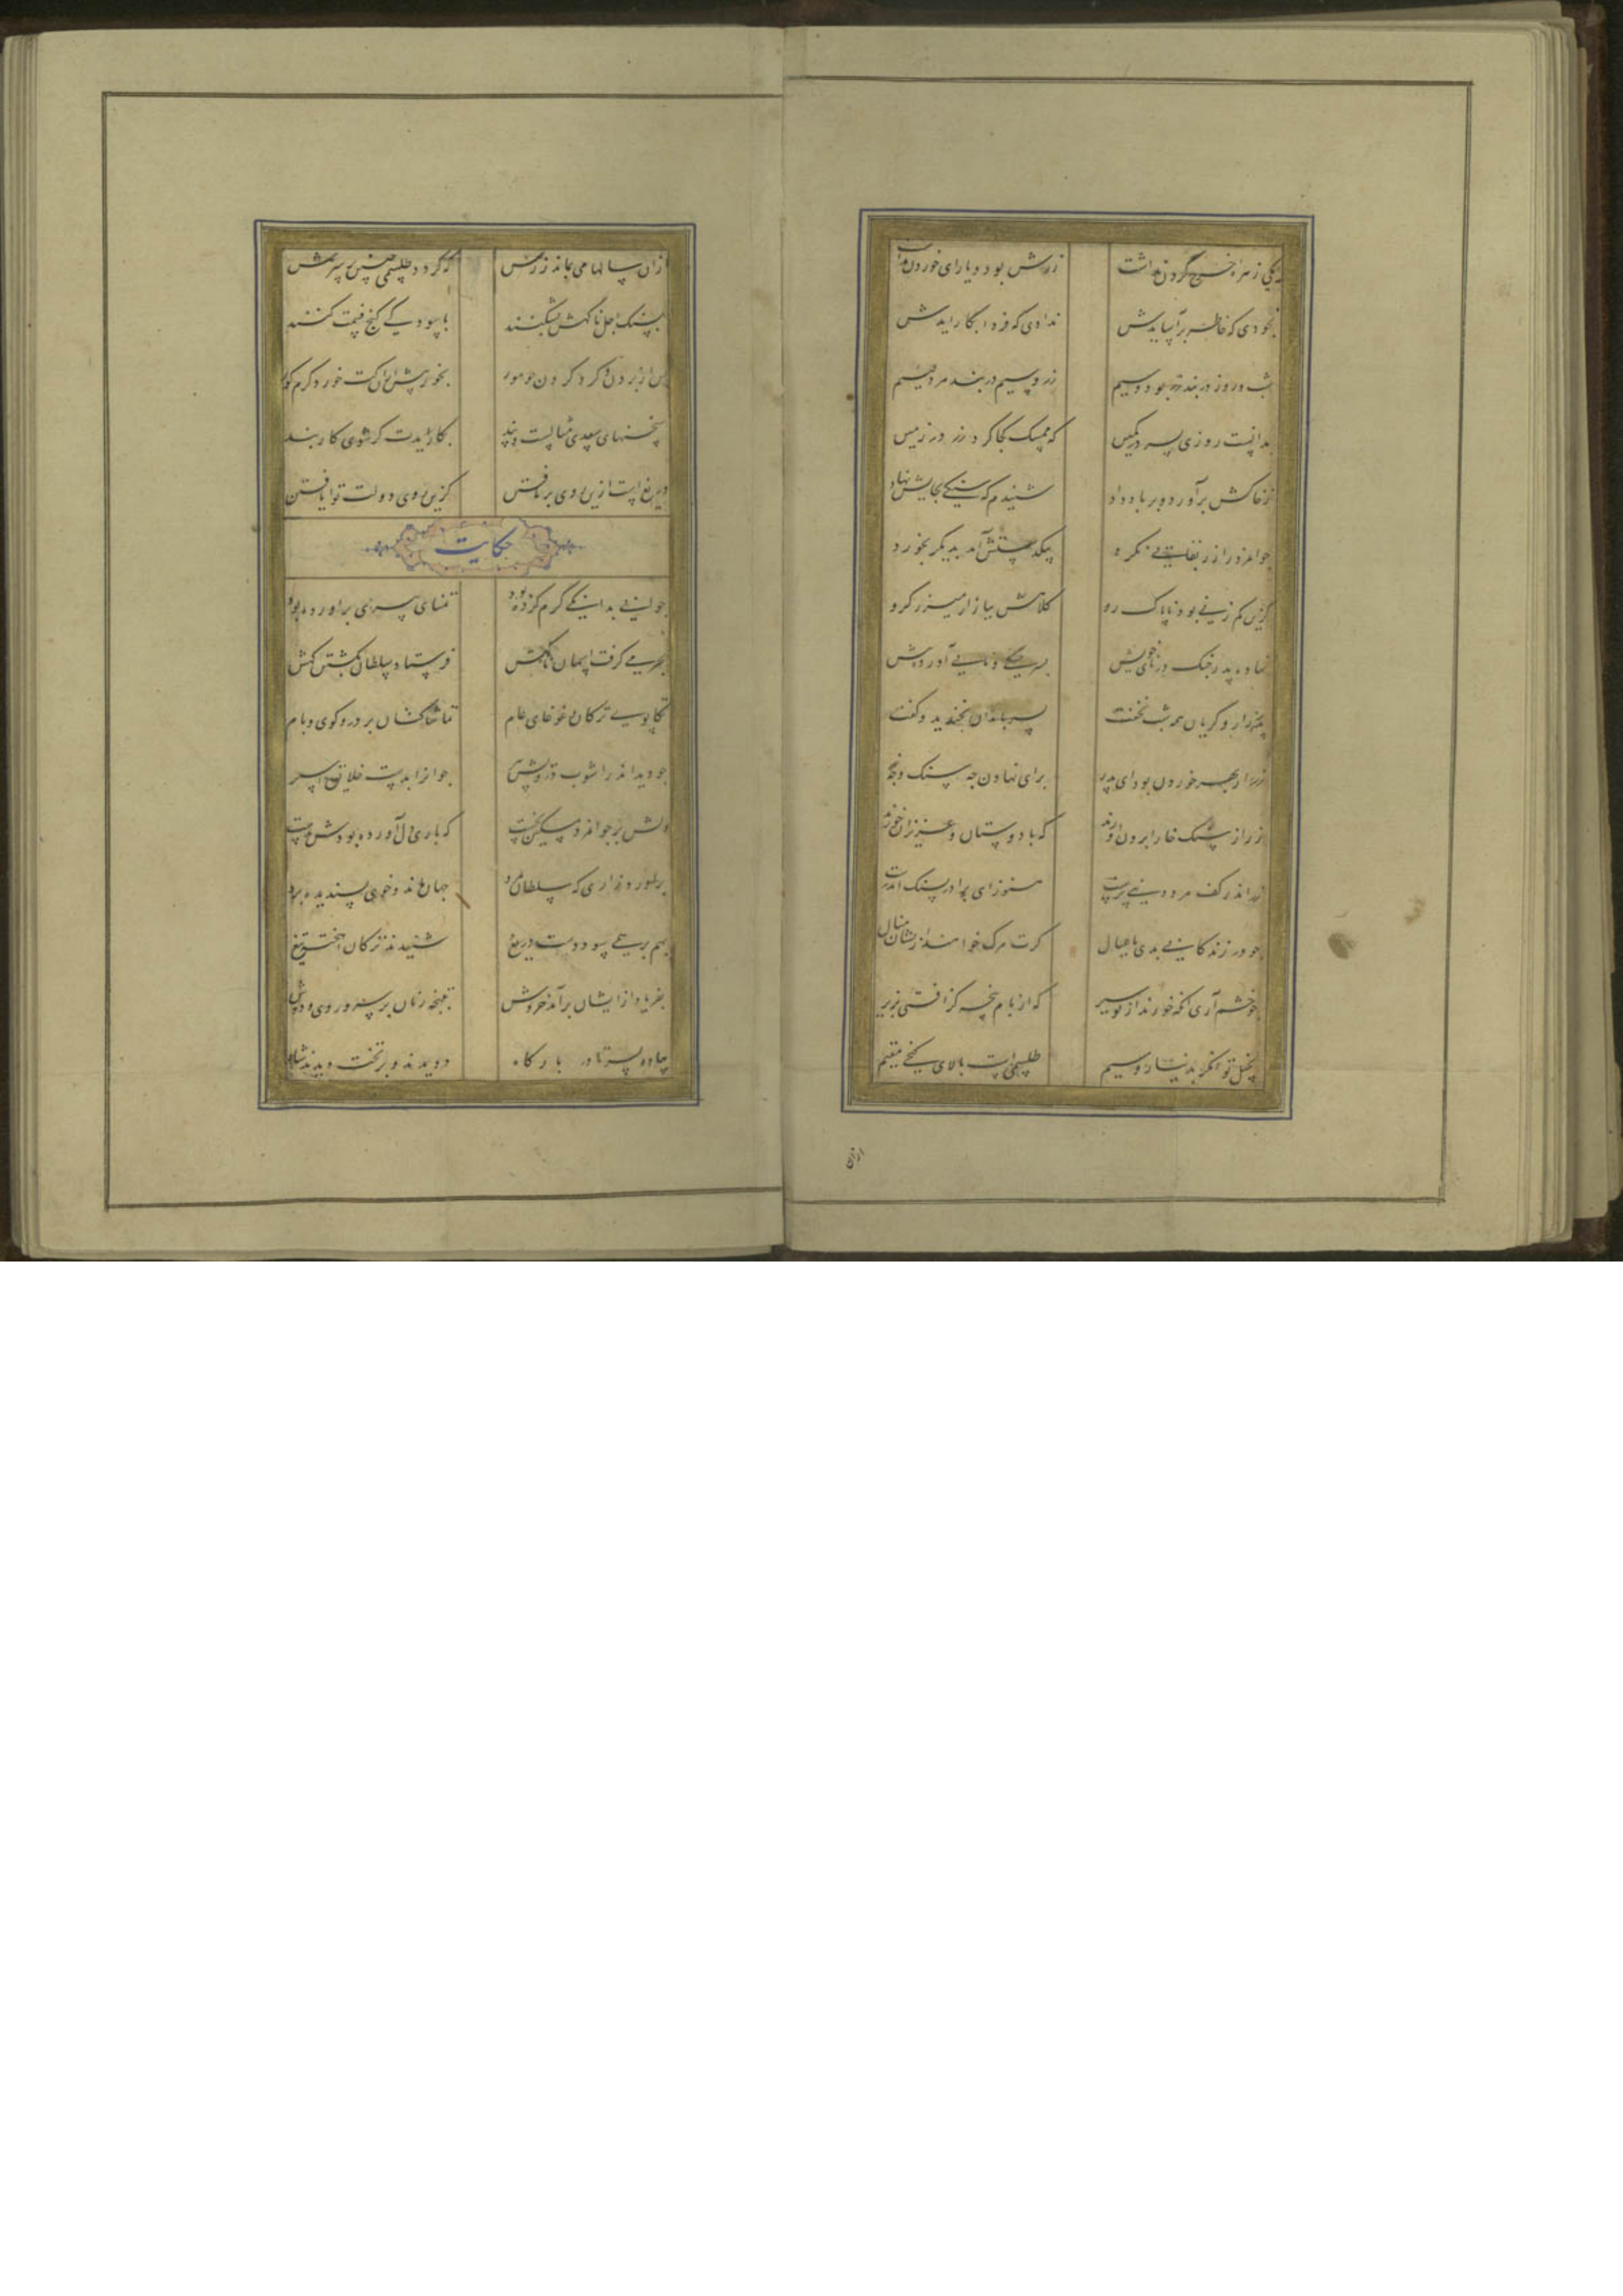 یکی زهره خرج کردن نداشت زرش بود و یارای خوردن نداشت
نخوردی که خاطر برآسایدش ندادی که فردا بکار ایدش
شب و روز در بند زر بود و سیم زر و سیم در بند مرد لئیم
بدانست روزی پسر در کمین که ممسک کجا کرد زر در زمین
ز خاکش برآورد و بر باد داد شنیدم که سنکی بجایش نهاد
جوانمرد را زر بقایی نکرد بیکدستش آمد بدیکر بخورد
کزین کم زنی بود ناپاک رو کلاهش ببازار میزر کرو
نهاده پدر چنک در نای خویش پسر چنکی و نایی آورد پیش
پدر زار و کریان همه شب نخفت پسر بامدادان بخندید و کفت
زر از بهر خوردن بود ای پدر برای نهادن چه سنک و چه زر
زر از سنک خارا برون آورند که با دوستان و عزیزان خورند
زر اندر کف مرد دنیی پرست هنوز ای برادر بسنک اندرست
چو در زندکانی بدی با عیال کرت مرک خواهند ازیشان منال
چو خشم آری آنکه خورند از تو سیر که از بام پنجه کز افتی بزیر
بخیل توانکر بدینار و سیم طلسمی است بالای کنجی مقیم
ازان
ازان سالها می بماند زرش که کردد طلسمی چنین بر سرش
بسنک اجل ناکهش بشکنند باسودکی کنج قیمت کنند
پس از بردن و کرد کردن چو مور بخور پیش ازان کت خورد کرم کور
سخنهای سعدی مثالست و پند بکار آیدت کر شوی کاربند
دریغ است ازین روی برتافتن کزین روی دولت توان یافتن
حکایت
جوانی بدانکی کرم کرده بود تمنای پیری برآورده بود
بجرمی کرفت آسمان ناکهش فرستاد سلطان بکشتن کهش
تکاپوی ترکان و غوغای عام تماشاکنان بر در و کوی و بام
چو دید اندر آشوب درویش پیر جوان را بدست خلایق اسیر
دلش بر جوانمرد مسکین بخست که باری دل آورده بودش بدست
برآورد زاری که سلطان بمرد جهان ماند و خوی پسندیده برد
بهم بر همی سود دست دریغ شنیدند ترکان آهخته تیغ
بفریاد ازیشان برآمد خروش تپنچه زنان بر سر و روی و دوش
پیاده بسر تا در بارکاه دویدند و بر تخت دیدند شاه